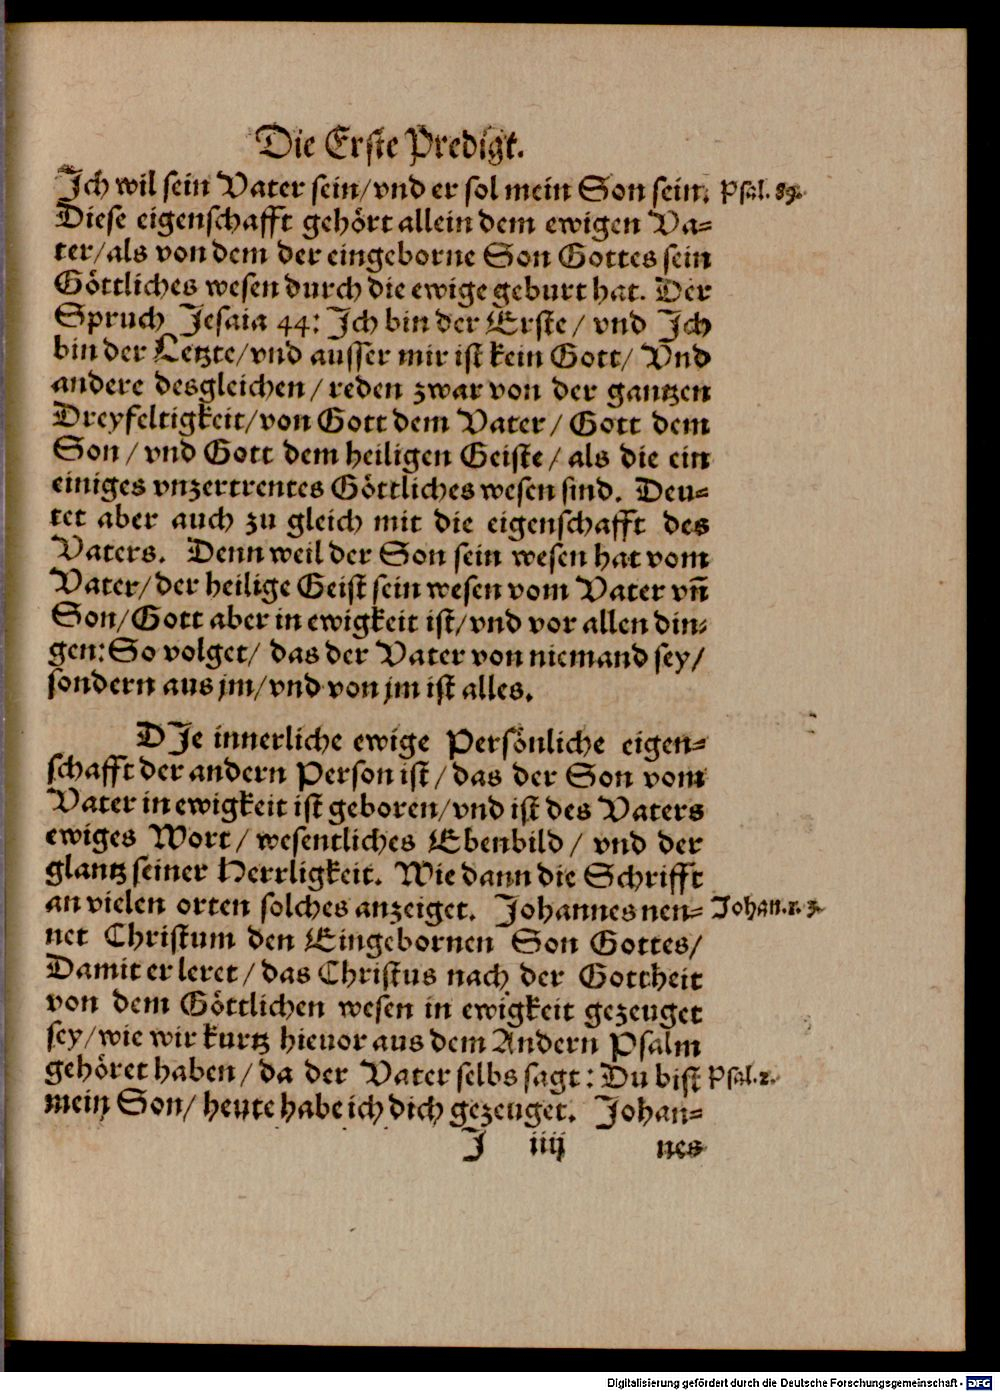 Die Erste Predigt.
Ich wil sein Vater sein/vnd er sol mein Son sein. Psal. 89.
Diese eigenschafft gehört allein dem ewigen Va⸗
ter/als von dem der eingeborne Son Gottes sein
Göttliches wesen durch die ewige geburt hat. Der
Spruch Jesaia 44: Ich bin der Erste/ vnd Ich
bin der Letzte/vnd ausser mir ist kein Gott/ Vnd
andere desgleichen/reden zwar von der gantzen
Dreyfeltigkeit/von Gott dem Vater/ Gott dem
Son/vnd Gott dem heiligen Geiste/als die ein
einiges vnzertrentes Göttliches wesen sind. Deu⸗
tet aber auch zu gleich mit die eigenschafft des
Vaters. Denn weil der Son sein wesen hat vom
Vater/der heilige Geist sein wesen vom Vater vñ
Son/Gott aber in ewigkeit ist/vnd vor allen din⸗
gen: So volget/ das der Vater von niemand sey/
sondern aus jm/vnd von jm ist alles.
DIe innerliche ewige Persönliche eigen⸗
schafft der andern Person ist/das der Son vom
Vater in ewigkeit ist geboren/vnd ist des Vaters
ewiges Wort/ wesentliches Ebenbild/ vnd der
glantz seiner Herrligkeit. Wie dann die Schrifft
an vielen orten solches anzeiget. Johannes nen⸗ Johan. 1. 3.
net Christum den Eingebornen Son Gottes/
Damit er leret/das Christus nach der Gottheit
von dem Göttlichen wesen in ewigkeit gezeuget
sey/wie wir kurtz hieuor aus dem Andern Psalm
gehöret haben/da der Vater selbs sagt: Du bist Psal. 2.
mein Son/ heute habe ich dich gezeuget. Johan⸗
J iiij nes
Digitalisierung gefördert durch die Deutsche Forschungsgemeinschaft - DFG